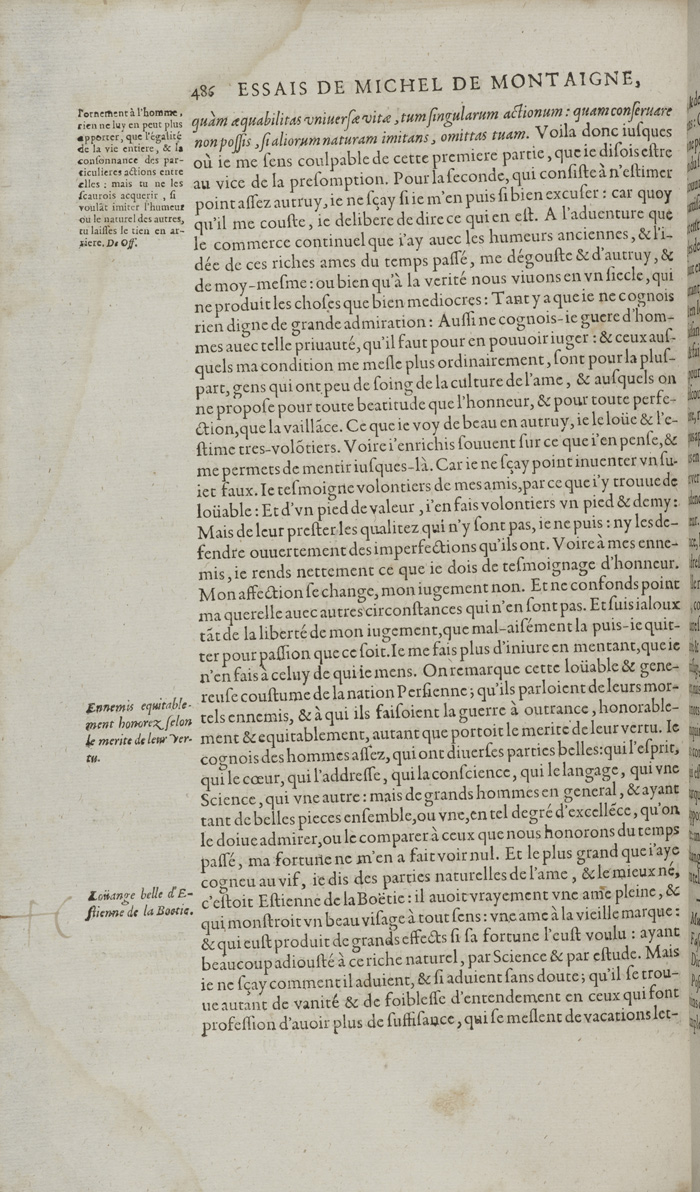 486 ESSAIS DE MICHEL DE MONTAIGNE,
l'ornement à l'homme,
rien ne luy en peut plus
apporter, que l'égalité
de la vie entiere, & la
consonnance des par-
ticulieres actions entre
elles : mais tu ne les
sçaurois acquerir, si
voulāt imiter l'humeur
ou le naturel des autres,
tu laisses le tien en ar-
riere. De Off.
quàm æquabilitas vniuersæ vitæ, tum singularum actionum : quam conseruare
non possis, si aliorum naturam imitans, omittas tuam. Voila donc iusques
où ie me sens coulpable de cette premiere partie, que ie disois estre
au vice de la presomption. Pour la seconde, qui consiste à n'estimer
point assez autruy, ie ne sçay si ie m'en puis si bien excuser : car quoy
qu'il me couste, ie delibere de dire ce qui en est. A l'aduenture que
le commerce continuel que i'ay auec les humeurs anciennes, & l'i-
dée de ces riches ames du temps passé, me dégouste & d'autruy, &
de moy-mesme : ou bien qu'à la verité nous viuons en vn siecle, qui
ne produit les choses que bien mediocres : Tant y a que ie ne cognois
rien digne de grande admiration : Aussi ne cognois-ie guere d'hom-
mes auec telle priuauté, qu'il faut pour en pouuoir iuger : & ceux aus-
quels ma condition me mesle plus ordinairement, sont pour la plus-
part, gens qui ont peu de soing de la culture de l'ame, & ausquels on
ne propose pour toute beatitude que l'honneur, & pour toute perfe-
ction, que la vaillāce. Ce que ie voy de beau en autruy, ie le loüe & l'e-
stime tres-volōtiers. Voire i'enrichis souuent sur ce que i'en pense, &
me permets de mentir iusques-là. Car ie ne sçay point inuenter vn su-
iet faux. Ie tesmoigne volontiers de mes amis, par ce que i'y trouue de
loüable : Et d'vn pied de valeur, i'en fais volontiers vn pied & demy :
Mais de leur prester les qualitez qui n'y sont pas, ie ne puis : ny les de-
fendre ouuertement des imperfections qu'ils ont. Voire à mes enne-
mis, ie rends nettement ce que ie dois de tesmoignage d'honneur.
Mon affection se change, mon iugement non. Et ne confonds point
ma querelle auec autres circonstances qui n'en sont pas. Et suis ialoux
tāt de la liberté de mon iugement, que mal-aisément la puis-ie quit-
ter pour passion que ce soit. Ie me fais plus d'iniure en mentant, que ie
n'en fais à celuy de qui ie mens. On remarque cette loüable & gene-
reuse coustume de la nation Persienne ; qu'ils parloient de leurs mor-
tels ennemis, & à qui ils faisoient la guerre à outrance, honorable-
ment & equitablement, autant que portoit le merite de leur vertu. Ie
cognois des hommes assez, qui ont diuerses parties belles : qui l'esprit,
qui le cœur, qui l'addresse, qui la conscience, qui le langage, qui vne
Science, qui vne autre : mais de grands hommes en general, & ayant
tant de belles pieces ensemble, ou vne, en tel degré d'excellēce, qu'on
le doiue admirer, ou le comparer à ceux que nous honorons du temps
passé, ma fortune ne m'en a fait voir nul. Et le plus grand que i'aye
cogneu au vif, ie dis des parties naturelles de l'ame, & le mieux né,
c'estoit Estienne de la Boëtie : il auoit vrayement vne ame pleine, &
qui monstroit vn beau visage à tout sens : vne ame à la vieille marque :
& qui eust produit de grands effects si sa fortune l'eust voulu : ayant
beaucoup adiousté à ce riche naturel, par Science & par estude. Mais
ie ne sçay comment il aduient, & si aduient sans doute ; qu'il se trou-
ue autant de vanité & de foiblesse d'entendement en ceux qui font
profession d'auoir plus de suffisance, qui se meslent de vacations let-
Ennemis equitable-
ment honorez selon
le merite de leur ver-
tu.
Loüange belle d'E-
stienne de la Boetie.